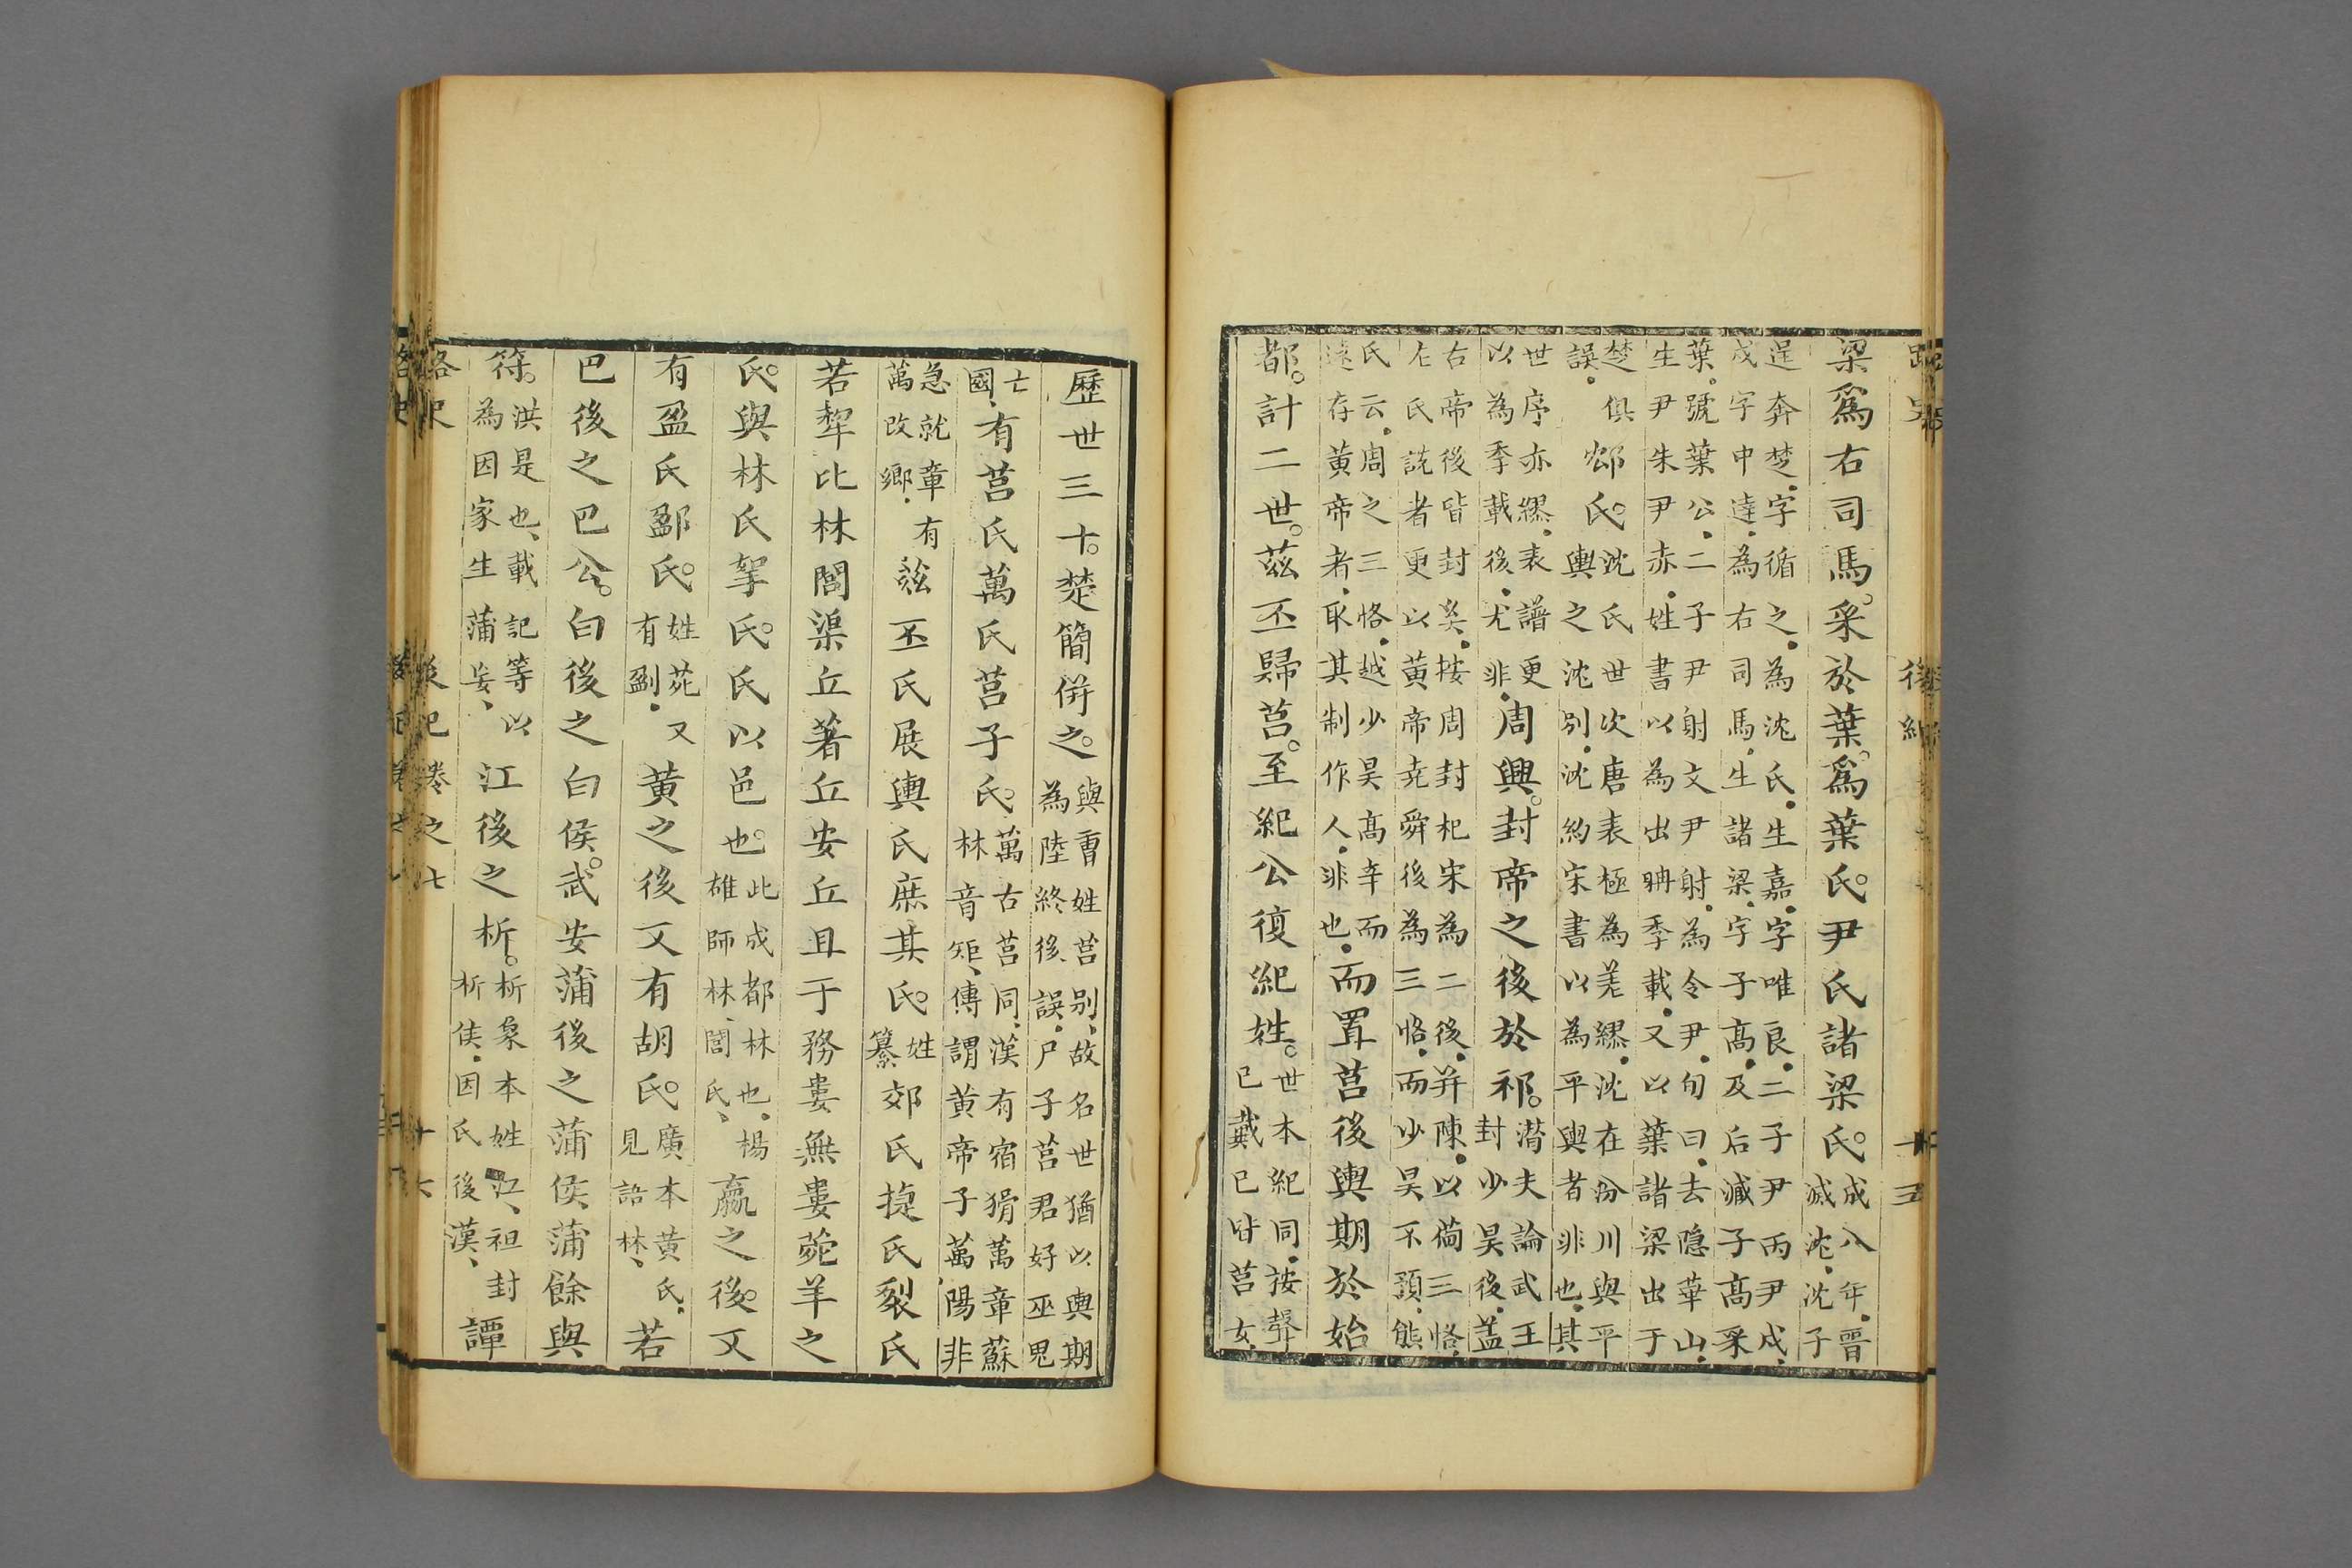 梁爲右司馬采於葉爲葉氏尹氏諸梁氏成八年晉滅沈沈子
逞奔楚字循之為沈氏生嘉字唯良二子尹丙尹戌
戌字中達為右司馬生諸梁字子高及后減子高采
葉號葉公二子尹射文尹射為令尹句曰去隱華山
生尹朱尹赤姓書以為出聃季載又以葉諸梁出于
楚俱
誤
郯氏沈氏世次唐表極為差繆沈在汾川與平
輿之沈別沈約宋書以為平輿者非也其
世序亦繆表譜更
以為季載後尤非
周興封帝之後於祁潛夫論武王封少昊後蓋
右帝後皆封矣按周封杞宋為二後并陳以備三恪
左氏說者更以黃帝堯舜後為三恪而少昊不預熊
氏云周之三恪越少昊高辛而
遠存黃帝者取其制作人非也
而置莒後輿期於始
都計二世茲丕歸莒至紀公復紀姓世本紀同按聲己戴己皆莒女
歷世三十楚簡併之與曹姓莒別故名世猶以輿期為陸終後誤尸子莒君好巫鬼
亡國有莒氏萬氏莒子氏萬古莒同漢有宿猾萬章蘇林音矩傳謂黃帝子萬陽非
急就章
萬改鄉
有茲丕氏展輿氏庶其氏姓纂郊氏㨗氏裂氏
若犂比林閭渠丘著丘安丘且于務婁無婁菀羊之
氏與林氏挐氏氏以邑也此成都林也楊雄師林閭氏嬴之後又
有盈氏䣆氏姓苑又有㔔黃之後又有胡氏廣本黃氏見語林若
巴後之巴公白後之白侯武安蒲後之蒲侯蒲餘與
符洪是也載記等以為因家生蒲妄江後之析析象本姓江祖封析侯因氏後漢譚
路史
後紀卷之七
十六